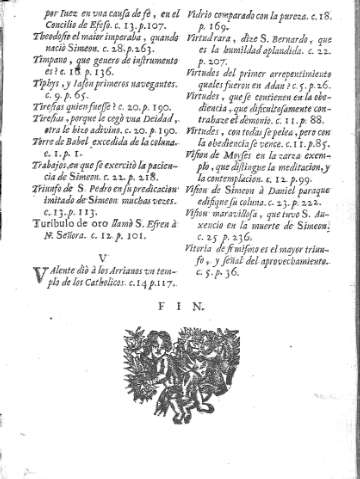 por Iuez en vna causa de fè, en el
Concilio de Efeso. c. 13. p. 107.
Theodosio el maior imperaba, quando
naciò Simeon. c. 28. p. 263.
Timpano, que genero de instrumento
es? c. 18 p. 136.
Tiphys, y Iasòn primeros navegantes.
c. 9. p. 65.
Tiresias quien fuesse? c. 20. p. 190.
Tiresias, porque le cegò vna Deidad,
otra le hizo adivino. c. 20. p. 190.
Torre de Babel excedida de la coluna.
c. 1. p. 1.
Trabajos, en que se exercitò la pacien-
cia de Simeon. c. 22. p. 218.
Triunfo de S. Pedro en su predicacion
imitado de Simeon muchas vezes.
c. 13. p. 113.
Turibulo de oro llamò S. Efren à
N. Señora. c. 12. p. 101.
V
VAlente diò à los Arrianos vn tem-
plo de los Catholicos. c. 14 p. 117.
Vidrio comparado con la pureza. c. 18.
p. 169.
Virtud rara, dize S. Bernardo, que
es la humildad aplaudida. c. 22.
p. 207.
Virtudes del primer arrepentimiento
quales fueron en Adan? c. 5. p. 26.
Virtudes, que se contienen en la obe-
diencia, que dificultosamente con-
trahaze el demonio. c. 11. p. 88.
Virtudes, con todas se pelea, pero con
la obediencia se vence. c. 11. p. 85.
Vision de Moyses en la zarza exem-
plo, que distingue la meditacion, y
la contemplacion. c. 12 p. 99.
Vision de Simeon à Daniel paraque
edifique su coluna. c. 23. p. 222.
Vision maravillosa, que tuvo S. Au-
xencio en la muerte de Simeon.
c. 25 p. 236.
Vitoria de si mismo es el mayor triun-
fo, y señal del aprovechamiento.
c. 5. p. 36.
FIN.